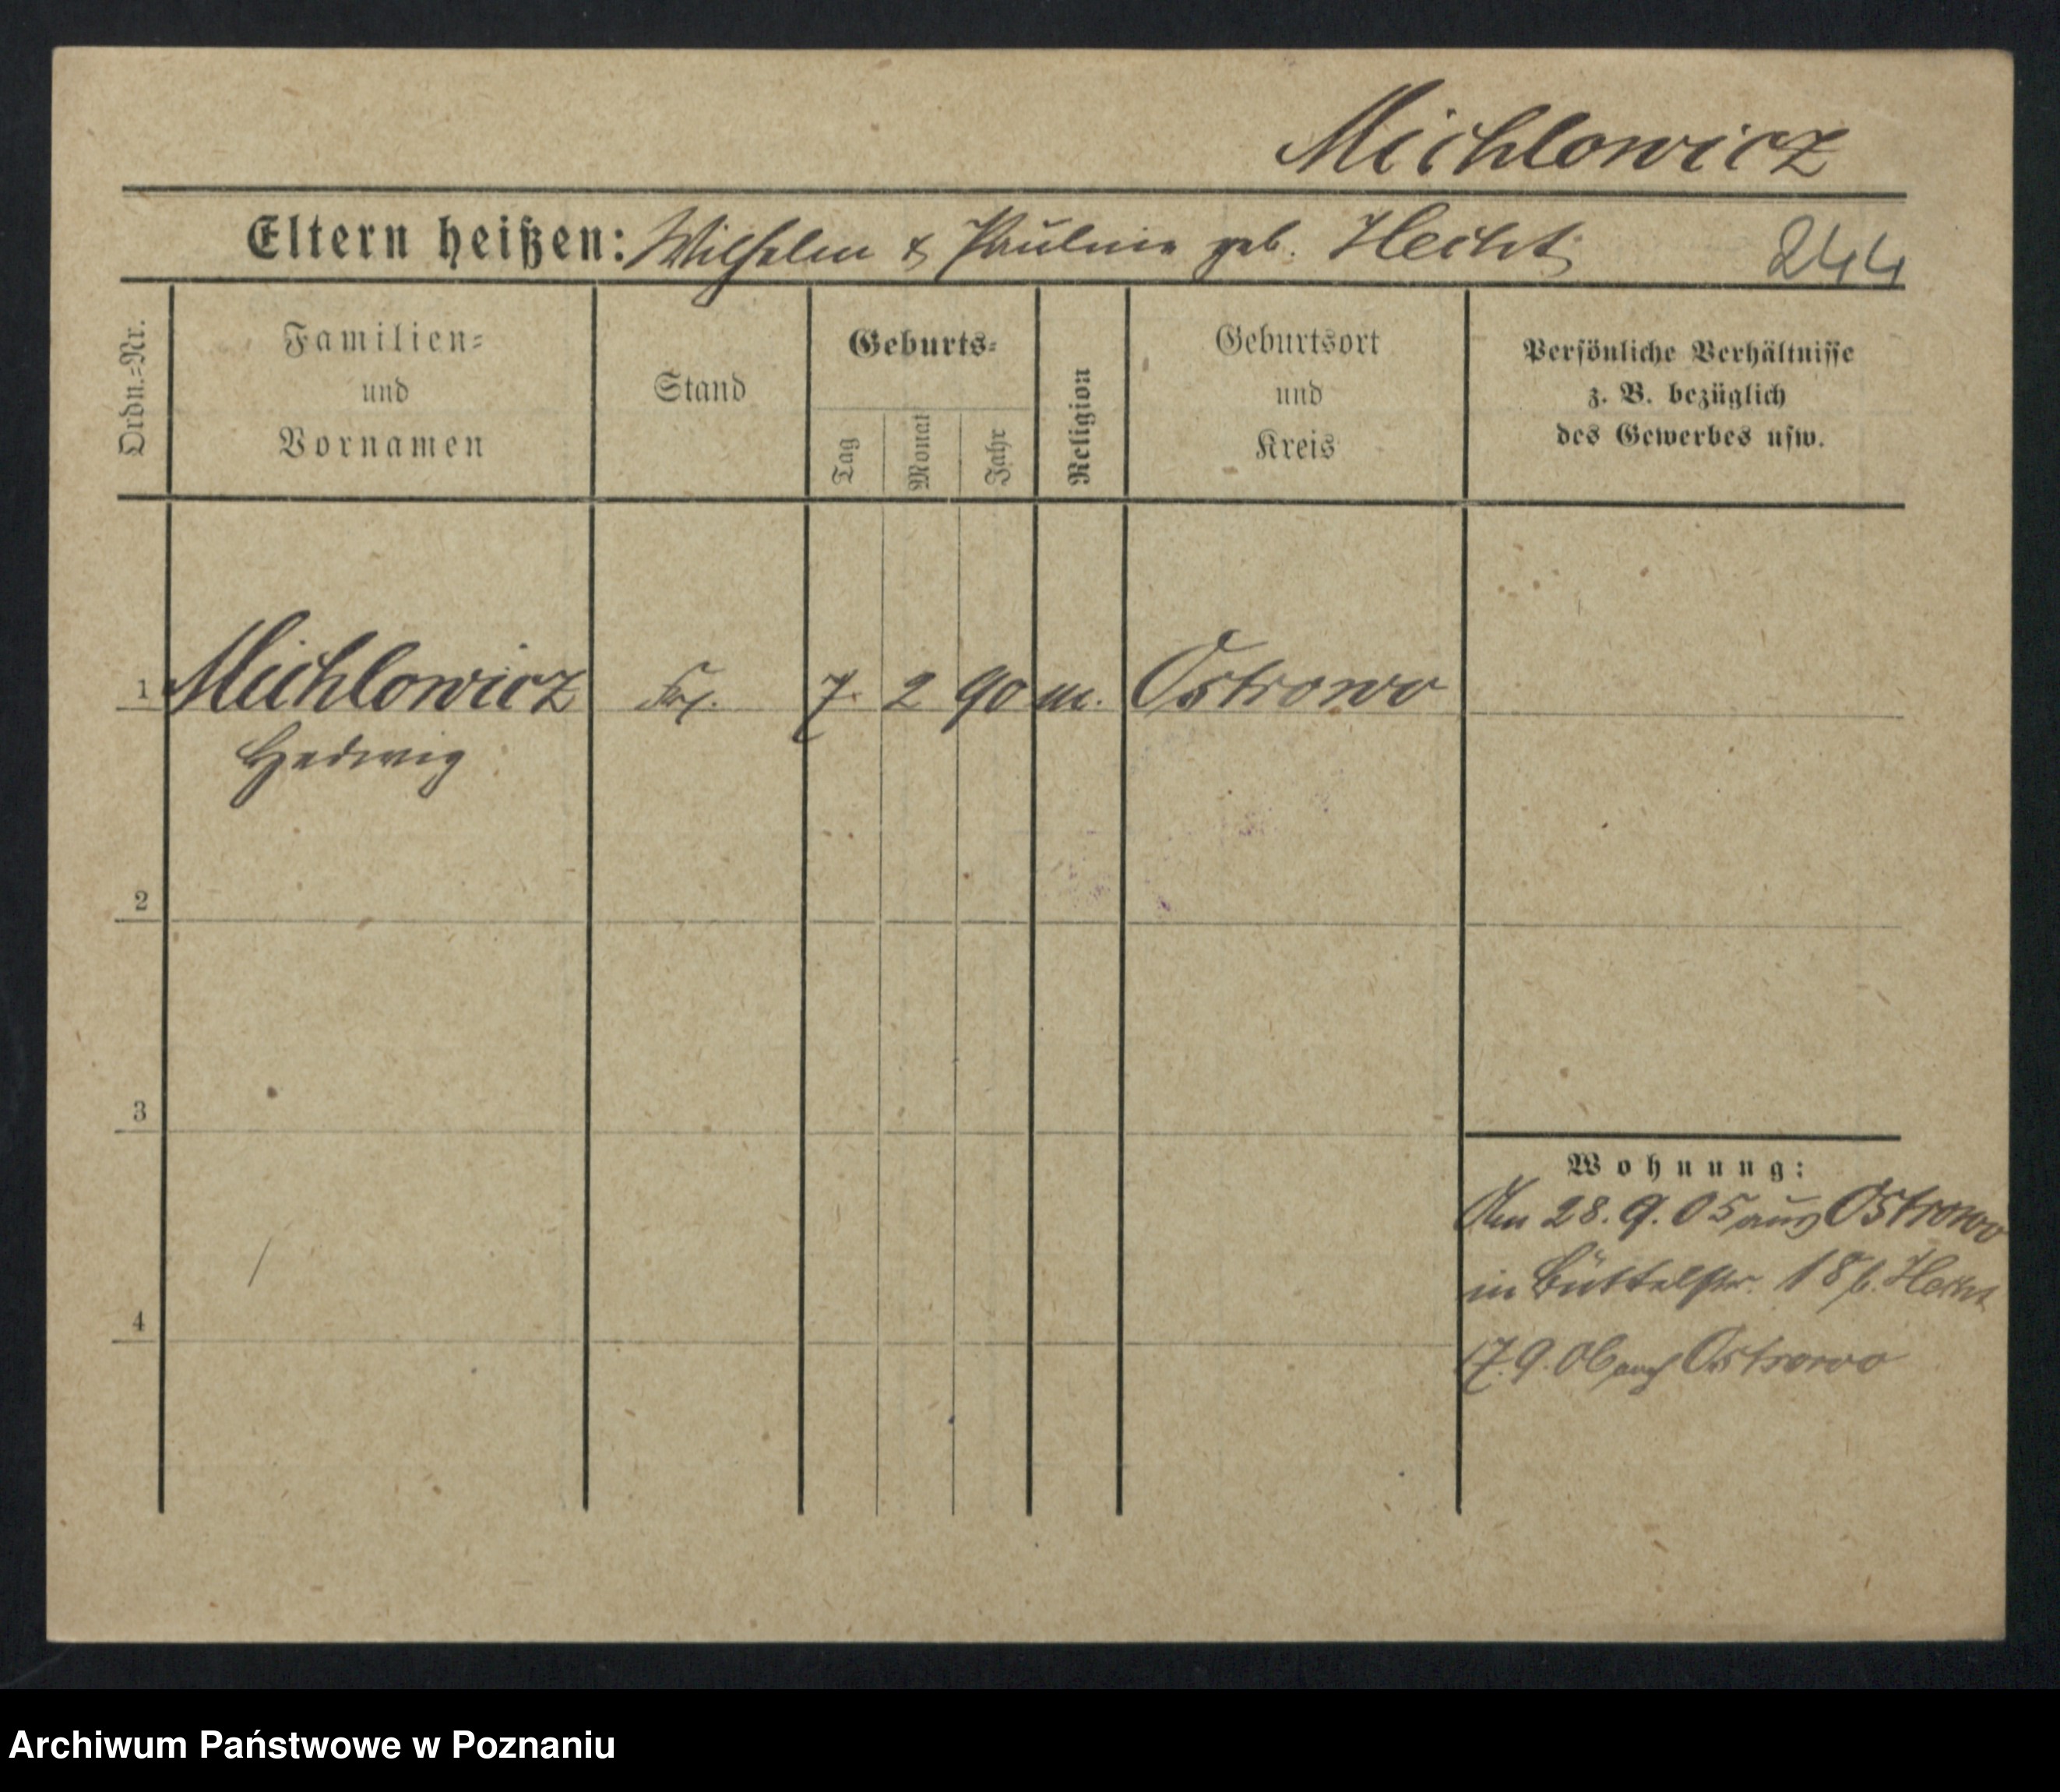 Michlowicz
Eltern heißen: Wilhelm & Pauline geb. Hecht
244
Ordn.-Nr.
Familien-
und
Vornamen
Stand
Geburts-
Tag
Monat
Jahr
Religion
Geburtsort
und
Kreis
Persönliche Verhältnisse
z. B. bezüglich
des Gewerbes usw.
1 Michlowicz Frl. 7. 2 90 m. Ostrowo
Hedwig
2
3
4
Wohnung:
Am 28. 9. 05 aus Ostrowo
in Büttelstr. 18 b. Hecht
17. 9. 06 nach Ostrowo
Archiwum Państwowe w Poznaniu